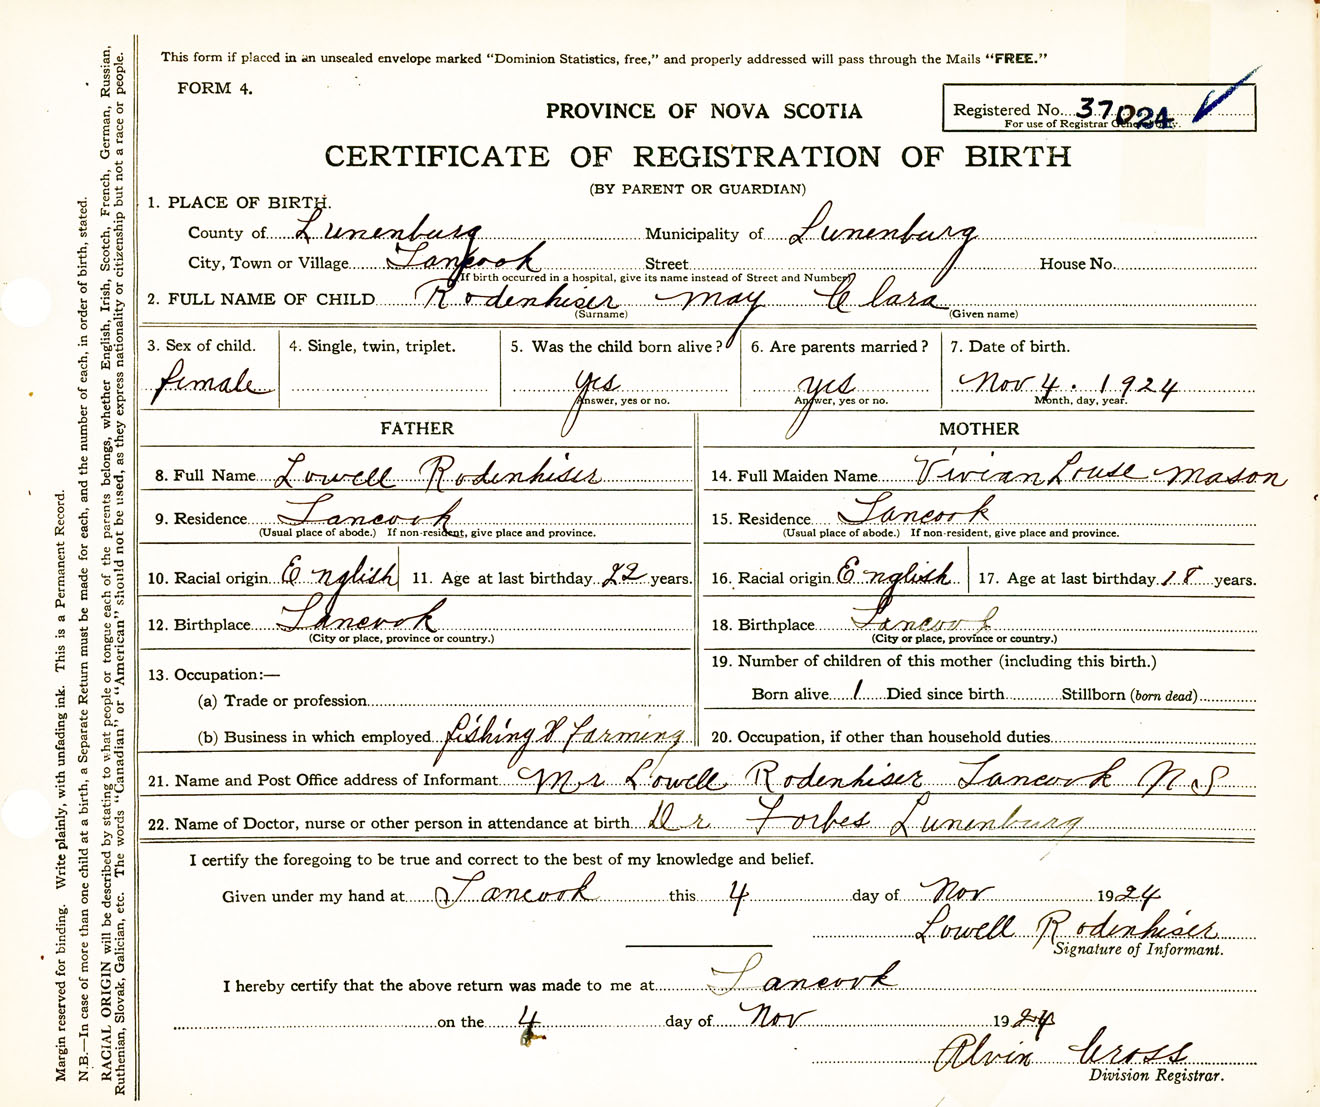 This form if placed in an unsealed envelope marked "Dominion Statistics, free," and properly addressed will pass through the Mails "FREE."
FORM 4.
PROVINCE OF NOVA SCOTIA
Registered No. 37024
For use of Registrar General only.
CERTIFICATE OF REGISTRATION OF BIRTH
(BY PARENT OR GUARDIAN)
1. PLACE OF BIRTH.
County of Lunenburg Municipality of Lunenburg
City, Town or Village Tancook Street House No.
(If birth occurred in a hospital, give its name instead of Street and Number)
2. FULL NAME OF CHILD Rodenhiser May Clara
(Surname) (Given name)
3. Sex of child. 4. Single, twin, triplet. 5. Was the child born alive? 6. Are parents married? 7. Date of birth.
female yes yes Nov 4. 1924
Answer, yes or no. Answer, yes or no. Month, day, year.
FATHER MOTHER
8. Full Name Lowell Rodenhiser 14. Full Maiden Name Vivian Louse Mason
9. Residence Tancook 15. Residence Tancook
(Usual place of abode.) If non-resident, give place and province. (Usual place of abode.) If non-resident, give place and province.
10. Racial origin English 11. Age at last birthday 22 years. 16. Racial origin English 17. Age at last birthday 18 years.
12. Birthplace Tancook 18. Birthplace Tancook
(City or place, province or country.) (City or place, province or country.)
13. Occupation:— 19. Number of children of this mother (including this birth.)
(a) Trade or profession Born alive 1 Died since birth Stillborn (born dead)
(b) Business in which employed fishing & farming 20. Occupation, if other than household duties
21. Name and Post Office address of Informant Mr Lowell Rodenhiser Tancook N S
22. Name of Doctor, nurse or other person in attendance at birth Dr Forbes Lunenburg
I certify the foregoing to be true and correct to the best of my knowledge and belief.
Given under my hand at Tancook this 4 day of Nov 1924
Lowell Rodenhiser
Signature of Informant.
I hereby certify that the above return was made to me at Tancook
on the 4 day of Nov 1924
Alvin Cross
Division Registrar.
Margin reserved for binding. Write plainly, with unfading ink. This is a Permanent Record.
N.B.—In case of more than one child at a birth, a Separate Return must be made for each, and the number of each, in order of birth, stated.
RACIAL ORIGIN will be described by stating to what people or tongue each of the parents belongs, whether English, Irish, Scotch, French, German, Russian,
Ruthenian, Slovak, Galician, etc. The words "Canadian" or "American" should not be used, as they express nationality or citizenship but not a race or people.